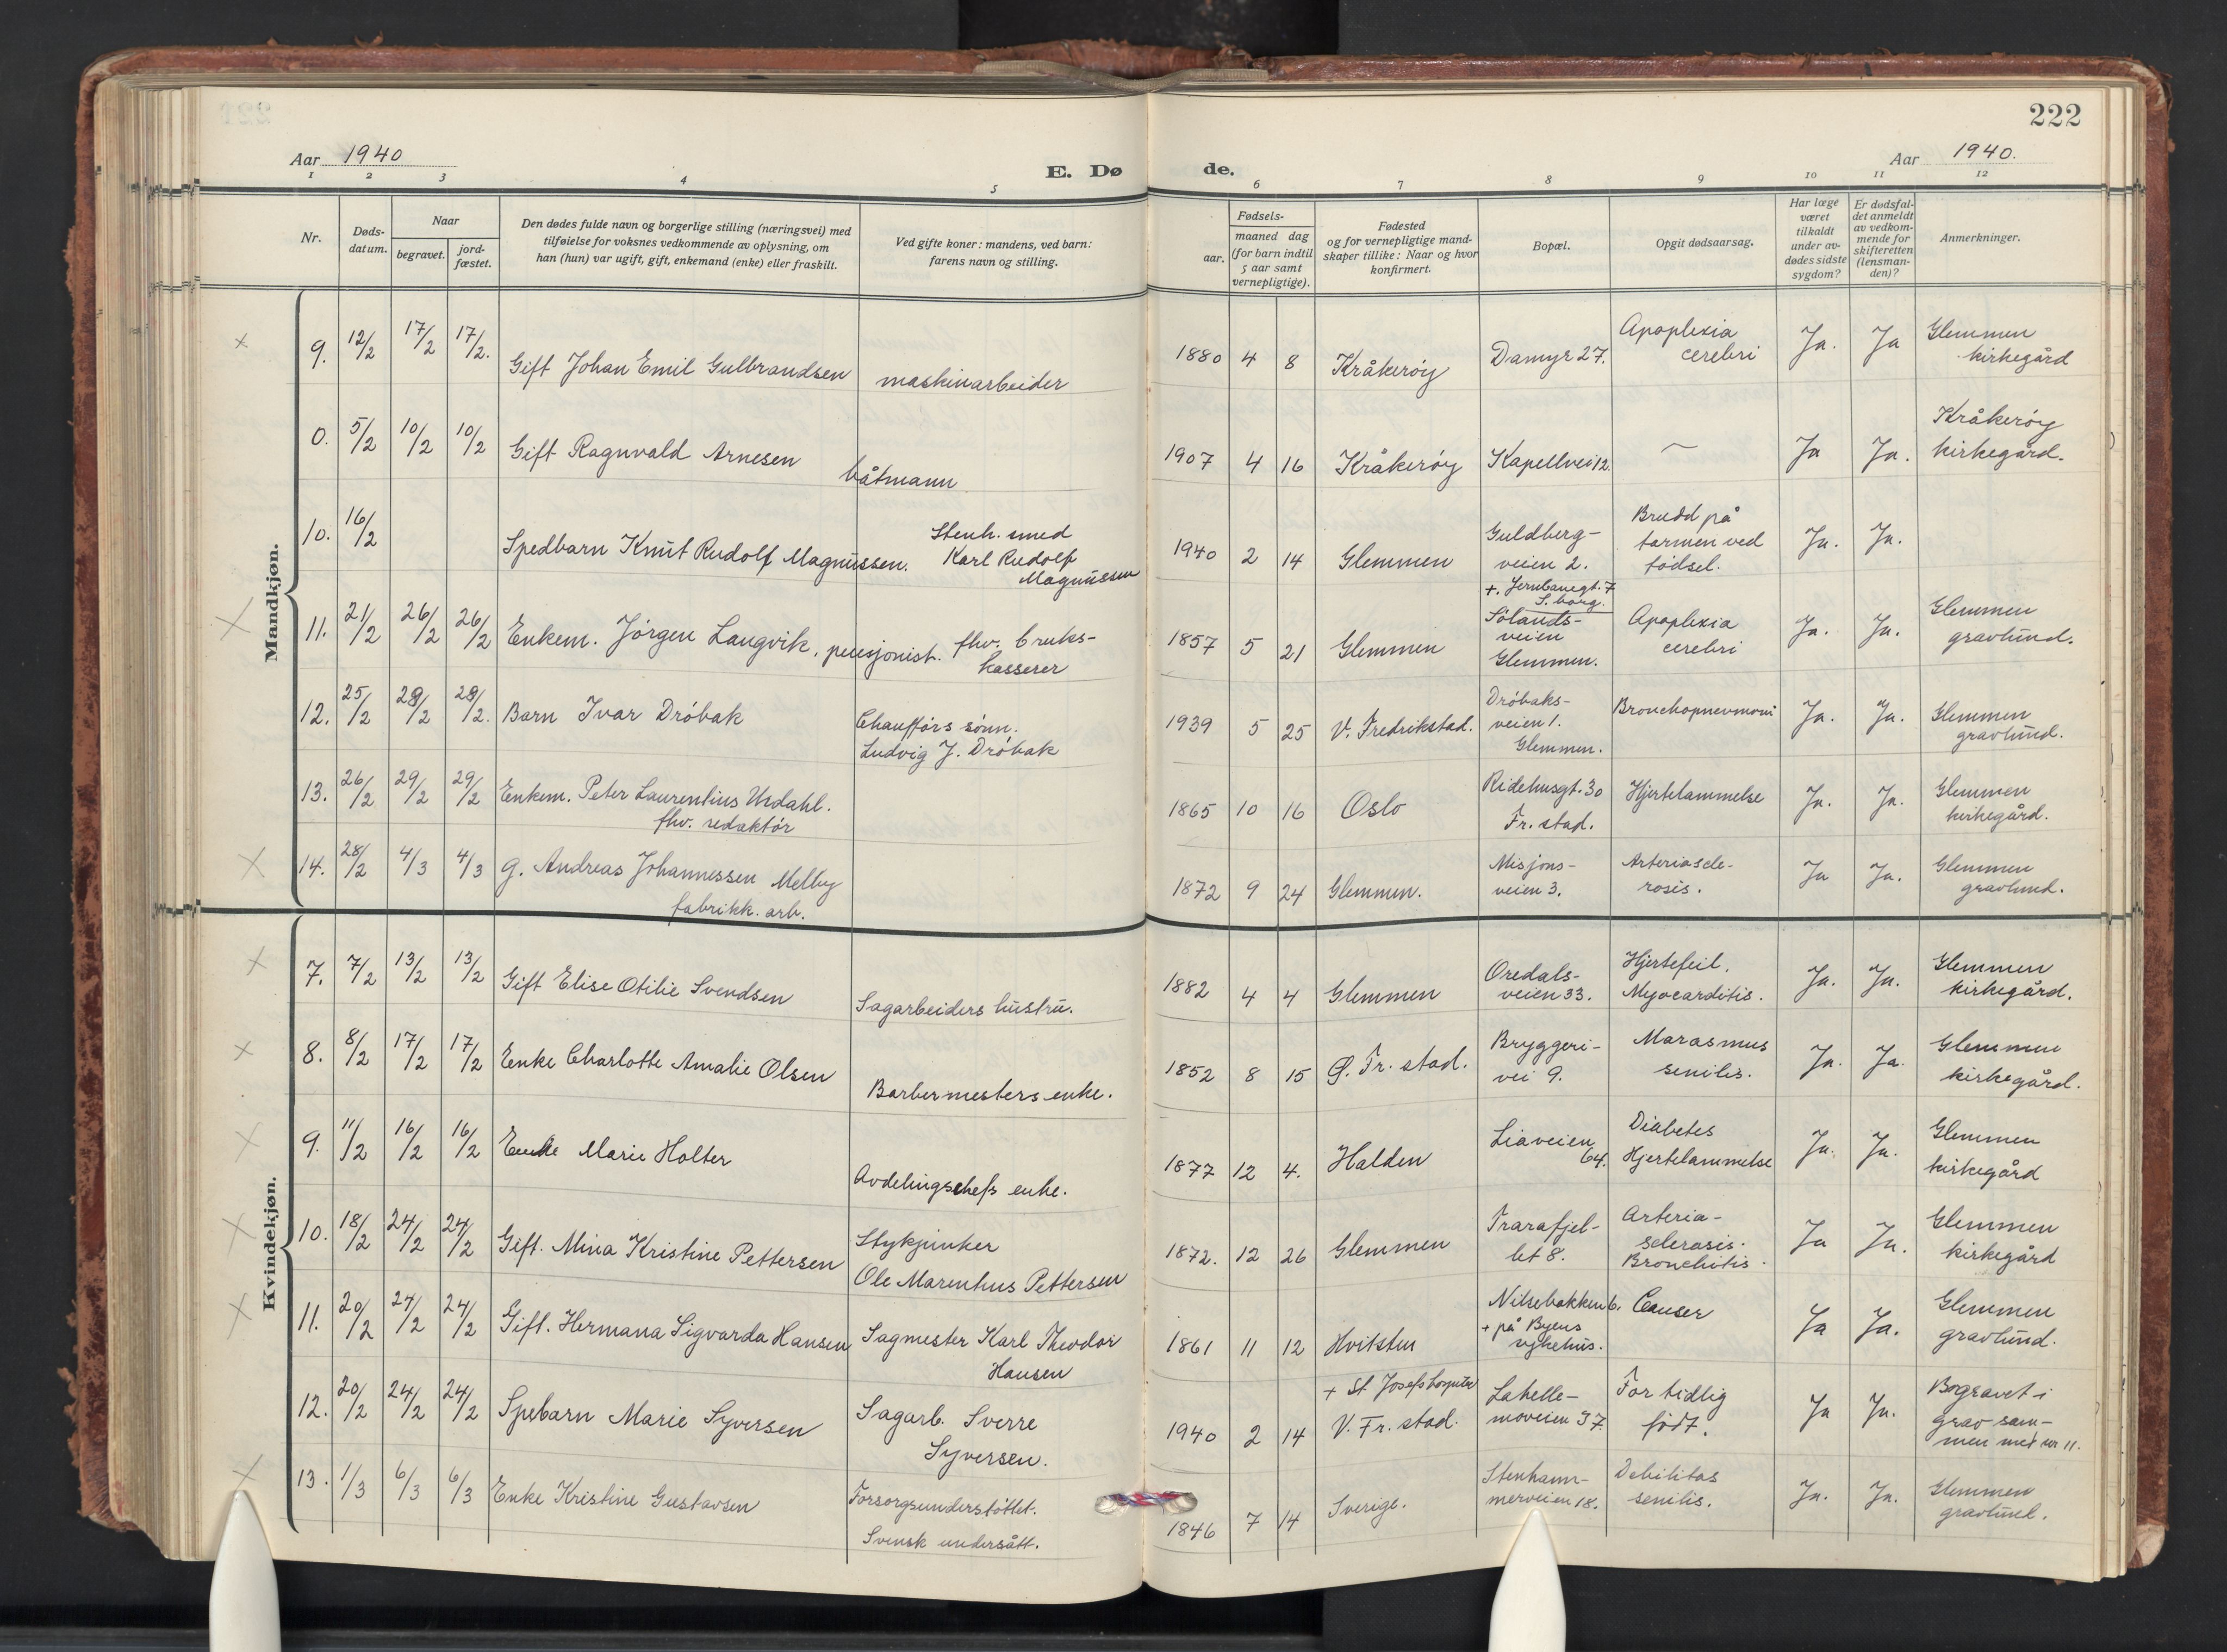 222
Aar 1940
E. Dø
de.
Aar 1940.
1 2 3 4 5 6 7 8 9 10 11 12
Nr.
Døds-
datum.
Naar
begravet.
jord-
fæstet.
Den dødes fulde navn og borgerlige stilling (næringsvei) med
tilføielse for voksnes vedkommende av oplysning, om
han (hun) var ugift, gift, enkemand (enke) eller fraskilt.
Ved gifte koner: mandens, ved barn:
farens navn og stilling.
Fødsels-
aar.
maaned dag
(for barn indtil
5 aar samt
vernepligtige).
Fødested
og for vernepligtige mand-
skaper tillike: Naar og hvor
konfirmert.
Bopæl.
Opgit dødsaarsag.
Har læge
været
tilkaldt
under av-
dødes sidste
sygdom?
Er dødsfal-
det anmeldt
av vedkom-
mende for
skifteretten
(lensman-
den)?
Anmerkninger.
Mandkjøn.
9. 12/2 17/2 17/2. Gift Johan Emil Gulbrandsen maskinarbeider
1880 4 8 Kråkerøy Damyr 27. Apoplexia
cerebri
Ja. Ja Glemmen
kirkegård
0. 5/2 10/2 10/2 Gift Ragnvald Arnesen
båtmann
1907 4 16 Kråkerøy Kapellvei 12. ~ Ja Ja. Kråkerøy
kirkegård.
10. 16/2 Spedbarn Knut Rudolf Magnussen. Stenh. smed
Karl Rudolf
Magnussen
1940 2 14 Glemmen Guldberg-
veien 2.
Brudd på
tarmen ved
fødsel.
Ja. Ja.
11. 21/2 26/2 26/2 Enkem. Jørgen Langvik, pensjonist. fhv. bruks-
kasserer
1857 5 21 Glemmen +. Jernbanegt. 7
S. borg.
Sølands-
veien
Glemmen.
Apoplexia
cerebri
Ja. Ja. Glemmen
gravlund.
12. 25/2 28/2 28/2. Barn Ivar Drøbak Chaufførs sønn.
Ludvig J. Drøbak
1939 5 25 V. Fredrikstad. Drøbaks-
veien 1.
Glemmen.
Bronchopnevmoni Ja. Ja. Glemmen
gravlund.
13. 26/2 29/2 29/2 Enkem. Peter Laurentius Urdahl.
fhv. redaktør
1865 10 16 Oslo Ridehusgt. 30
Fr. stad.
Hjertelammelse Ja. Ja. Glemmen
kirkegård.
14. 28/2 4/3 4/3 g. Andreas Johannessen Melby
fabrikk. arb.
1872 9 24 Glemmen. Misjons-
veien 3.
Arteriascle-
rosis.
Ja Ja. Glemmen
gravlund.
Kvindekjøn.
7. 7/2 13/2 13/2 Gift Elise Otilie Svendsen Sagarbeiders hustru.
1882 4 4 Glemmen Oredals-
veien 33.
Hjertefeil.
Myocarditis.
Ja. Ja. Glemmen
kirkegård.
8. 8/2 17/2 17/2 Enke Charlotte Amalie Olsen Barbermesters enke.
1852 8 15 Ø. Fr. stad. Bryggeri-
vei 9.
Marasmus
senilis.
Ja. Ja. Glemmen
kirkegård.
9. 11/2 16/2 16/2 Enke Marie Holter Avdelingschefs enke.
1877 12 4. Halden Liaveien
64.
Diabetes
Hjertelammelse
Ja. Ja. Glemmen
kirkegård
10. 18/2 24/2 24/2 Gift. Mina Kristine Pettersen Stykjunker
Ole Marenhus Pettersen
1872. 12 26 Glemmen Trarafjel-
let 8.
Arteria-
sclerosis.
Bronchitis.
Ja Ja. Glemmen
kirkegård
11. 20/2 24/2 24/2 Gift. Hermana Sigvarda Hansen Sagmester Karl Theodor
Hansen
1861 11 12 Hvitsten Nilsebakken 6.
+ på Byens
sykehus.
Cancer Ja Ja. Glemmen
gravlund.
12. 20/2 24/2 24/2 Spebarn Marie Syversen Sagarb. Sverre
Syversen.
1940 2 14 + St Josefs hospital
V. Fr. stad.
Lahelle-
moveien 37.
For tidlig
født.
Ja Ja. Begravet i
grav sam-
men med nr 11.
13. 1/3 6/3 6/3 Enke Kristine Gustavsen Forsorgsunderstøttet.
Svensk undersått.
1846 7 14 Sverige. Stenham-
merveien 18.
Debilitas
senilis.
Ja. Ja. Glemmen
gravlund.